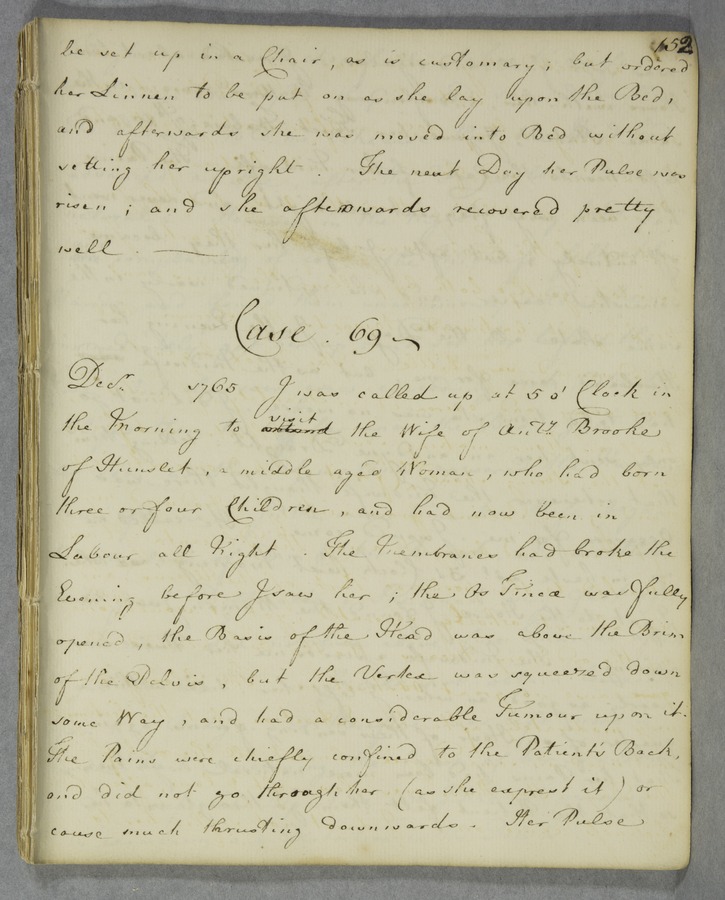 152
be set up in a Chair, as is customary; but ordered
her Linnen to be put on as she lay upon the Bed,
and afterwards she was moved into Bed without
setting her upright. The next Day her Pulse was
risen; and she afterwards recovered pretty
well. —
Case. 69
Decr. 1765 I was called up at 5 o' Clock in
the Morning to attend visit the Wife of Anty. Brooke
of Hunslet, a middle aged Woman, who had born
three or four Children, and had now been in
Labour all Night. The Membranes had broke the
Evening before I saw her; the Os Tincæ was fully
opened, the Basis of the Head was above the Brim
of the Pelvis, but the Vertex was squeezed down
some Way, and had a considerable Tumour upon it.
The Pains were chiefly confined to the Patient's Back,
and did not go through her (as she exprest it) or
cause much thrusting downwards. Her Pulse